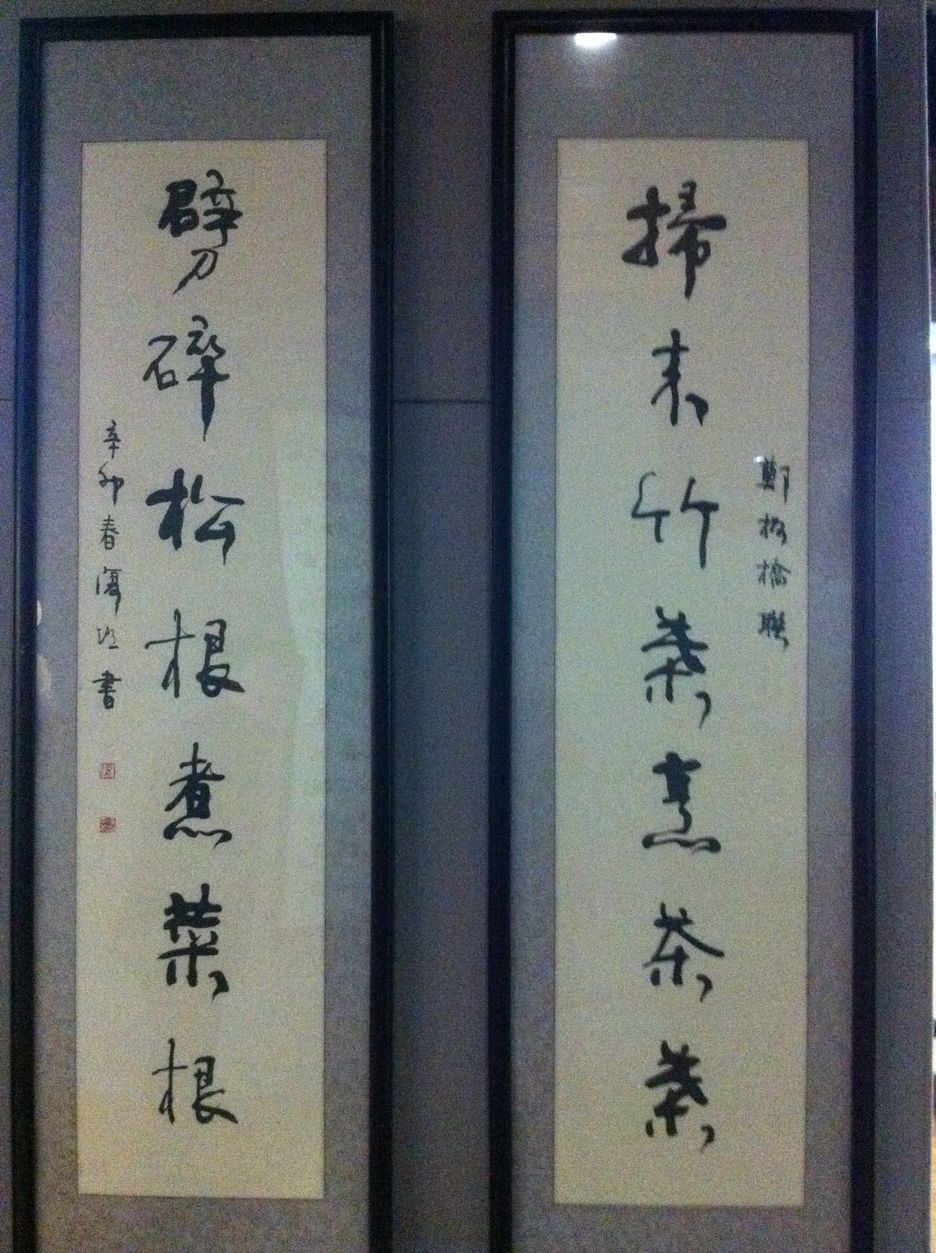 掃來竹葉烹茶葉
鄭板橋聯
劈碎松根煮菜根
辛卯春
書